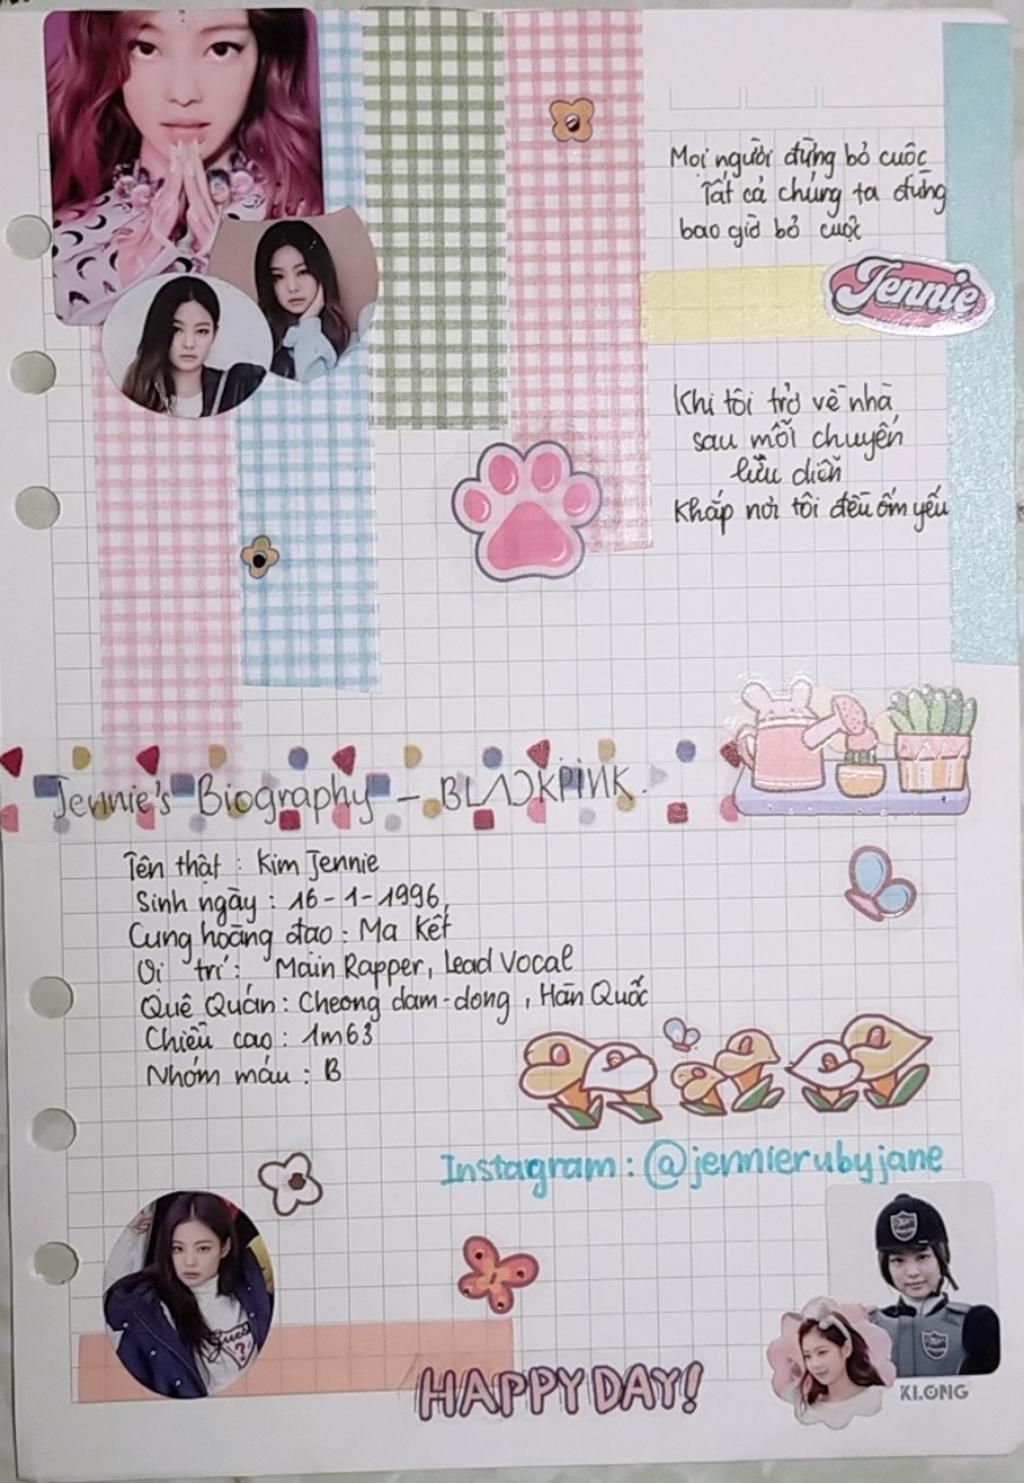 Mọi người đừng bỏ cuộc
Tất cả chúng ta đừng
bao giờ bỏ cuộc
Jennie
Khi tôi trở về nhà
sau mỗi chuyến
lưu diễn
Khắp nơi tôi đều ốm yếu
Jennie's Biography - BLACKPINK.
Tên thật : Kim Jennie
Sinh ngày : 16-1-1996
Cung hoàng đạo : Ma Kết
Vị trí : Main Rapper, Lead Vocal
Quê Quán : Cheong dam-dong, Hàn Quốc
Chiều cao : 1m63
Nhóm máu : B
Instagram : @jennierubyjane
Guess
?
HAPPY DAY!
KI.ONG